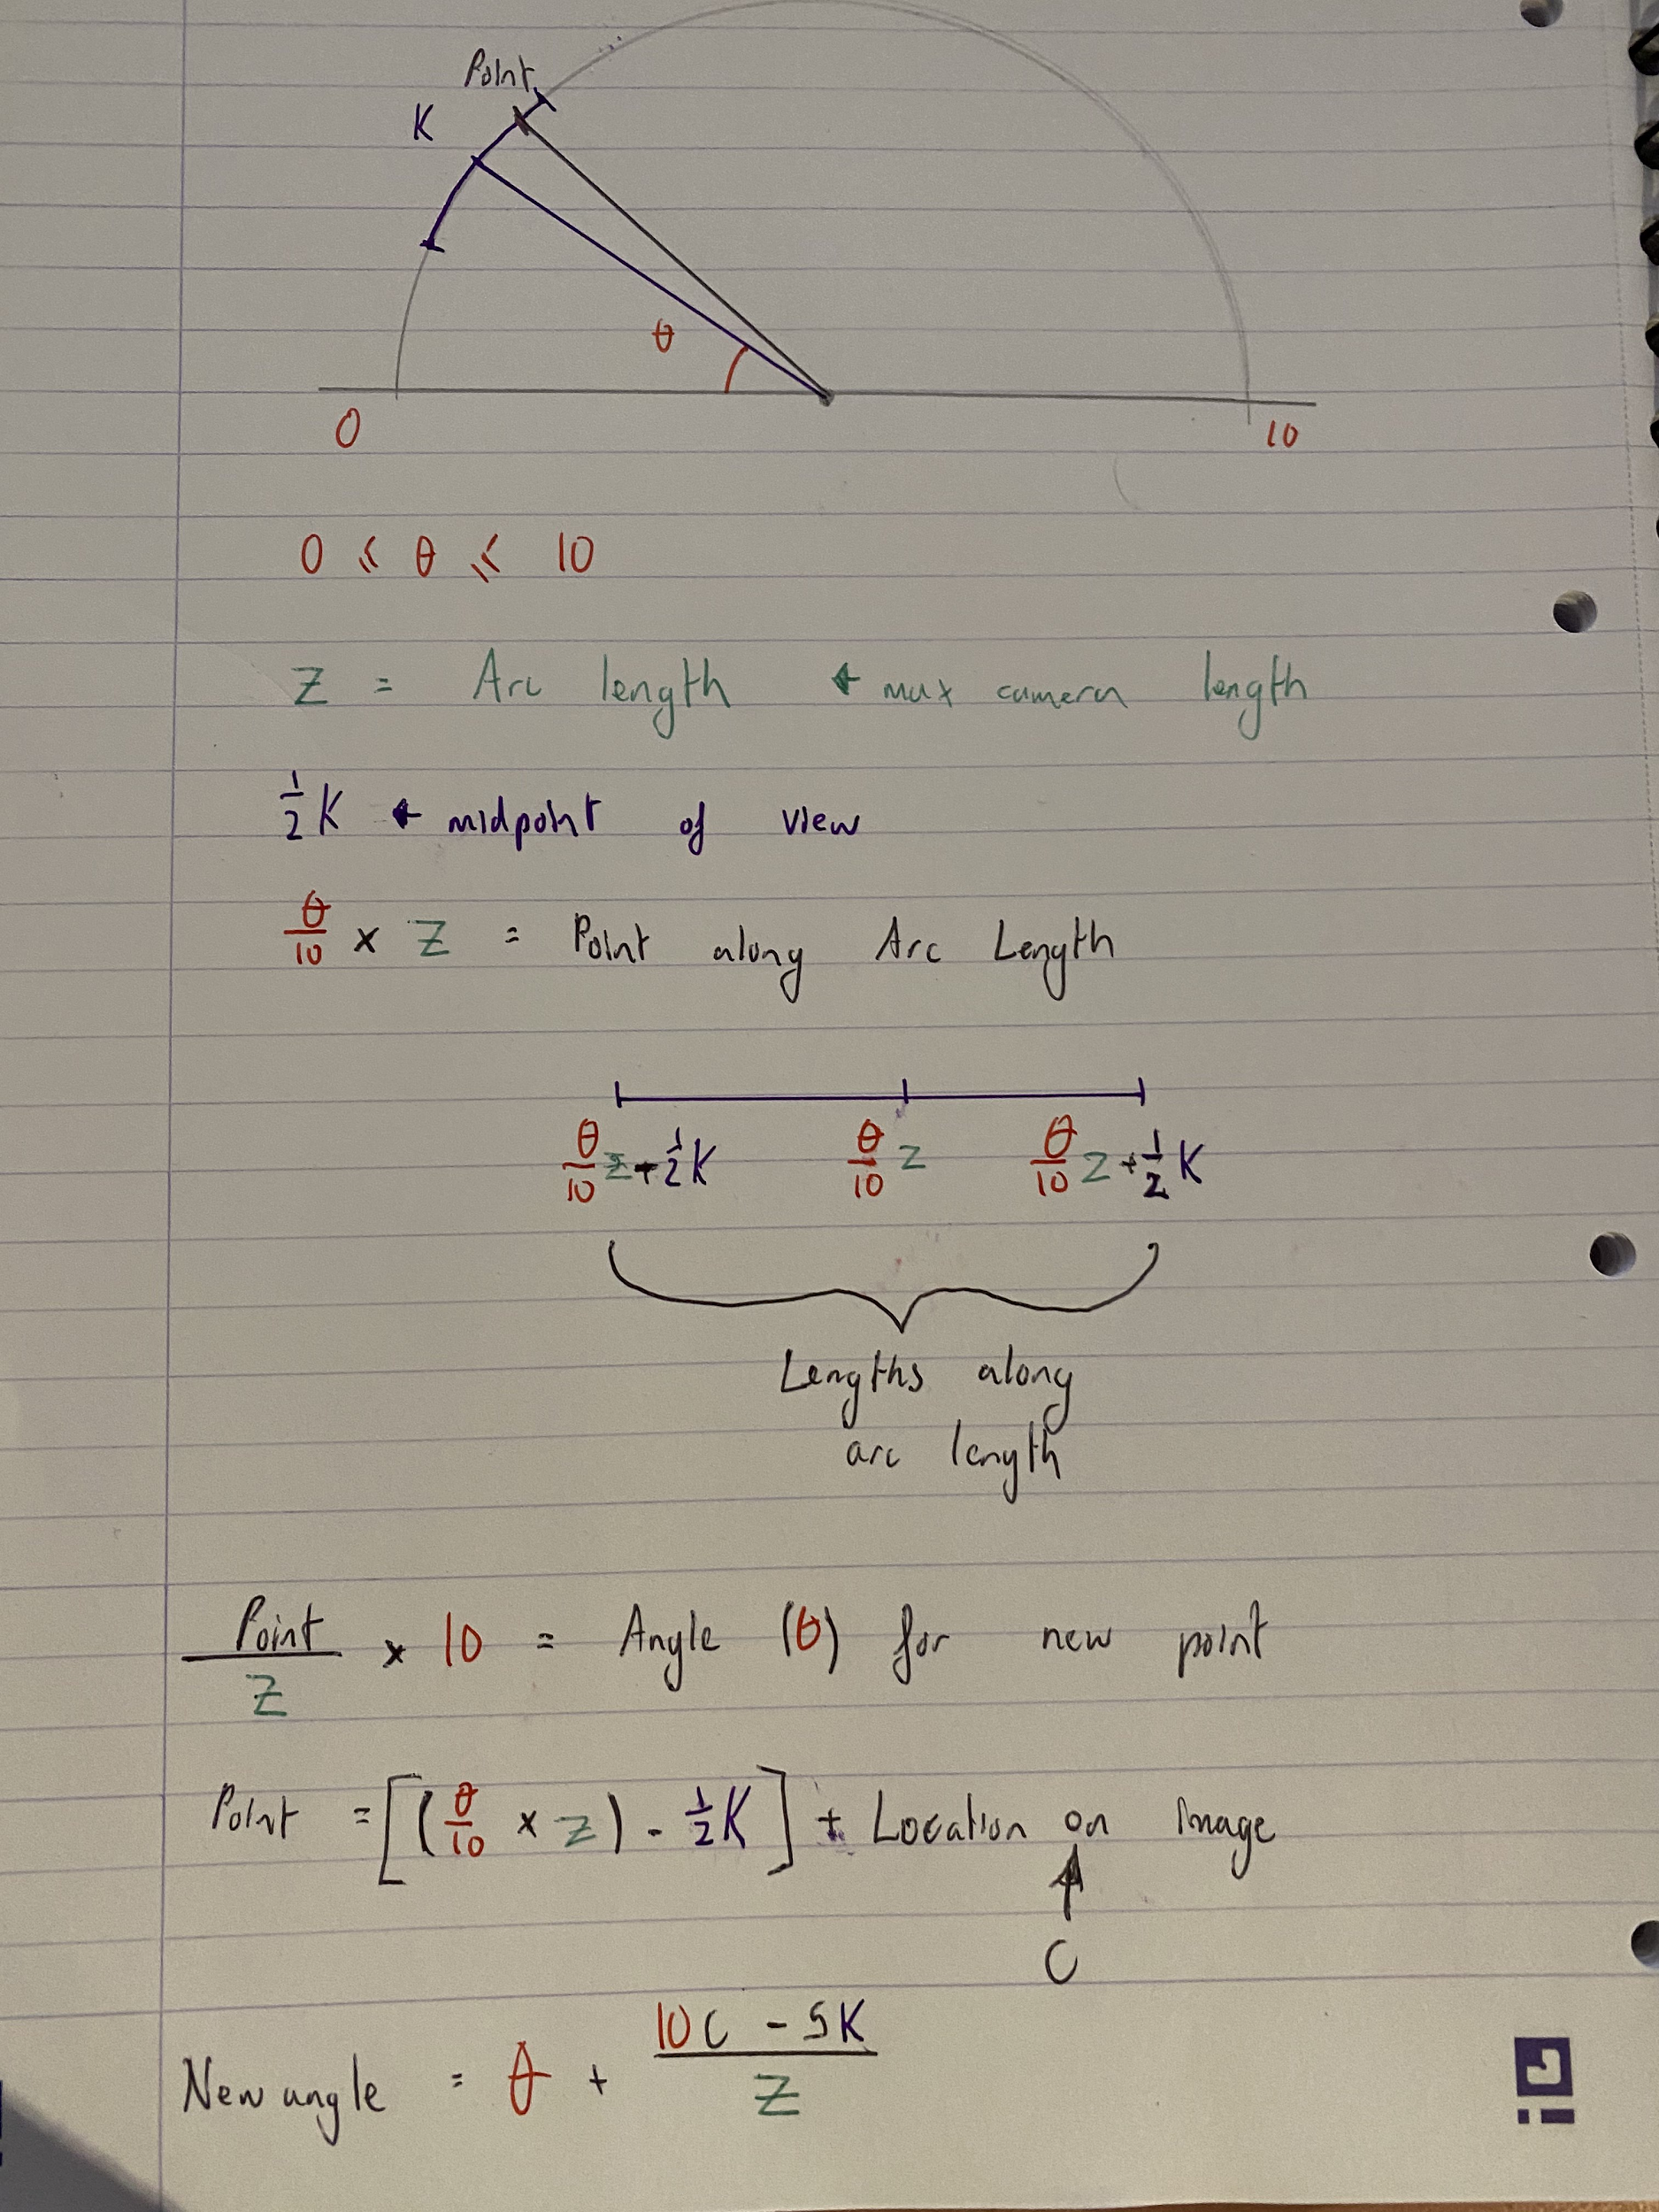 Point
K
θ
0
10
0 ≤ θ ≤ 10
Z = Arc length ← max camera length
1/2 K ← midpoint of view
θ/10 × Z = Point along Arc Length
θ/10 Z + 1/2 K θ/10 Z θ/10 Z + 1/2 K
Lengths along
arc length
Point/Z × 10 = Angle (θ) for new point
Point = [(θ/10 × Z) - 1/2 K] + Location on image
C
New angle = θ + (10C - 5K)/Z